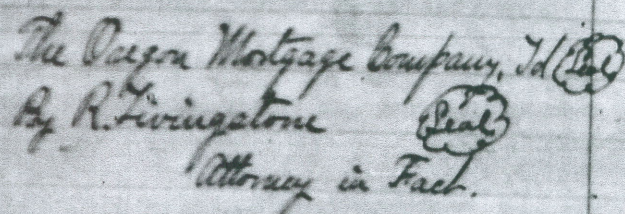 The Oregon Mortgage Company, Ld Seal
By R. Livingstone Seal
Attorney in Fact.